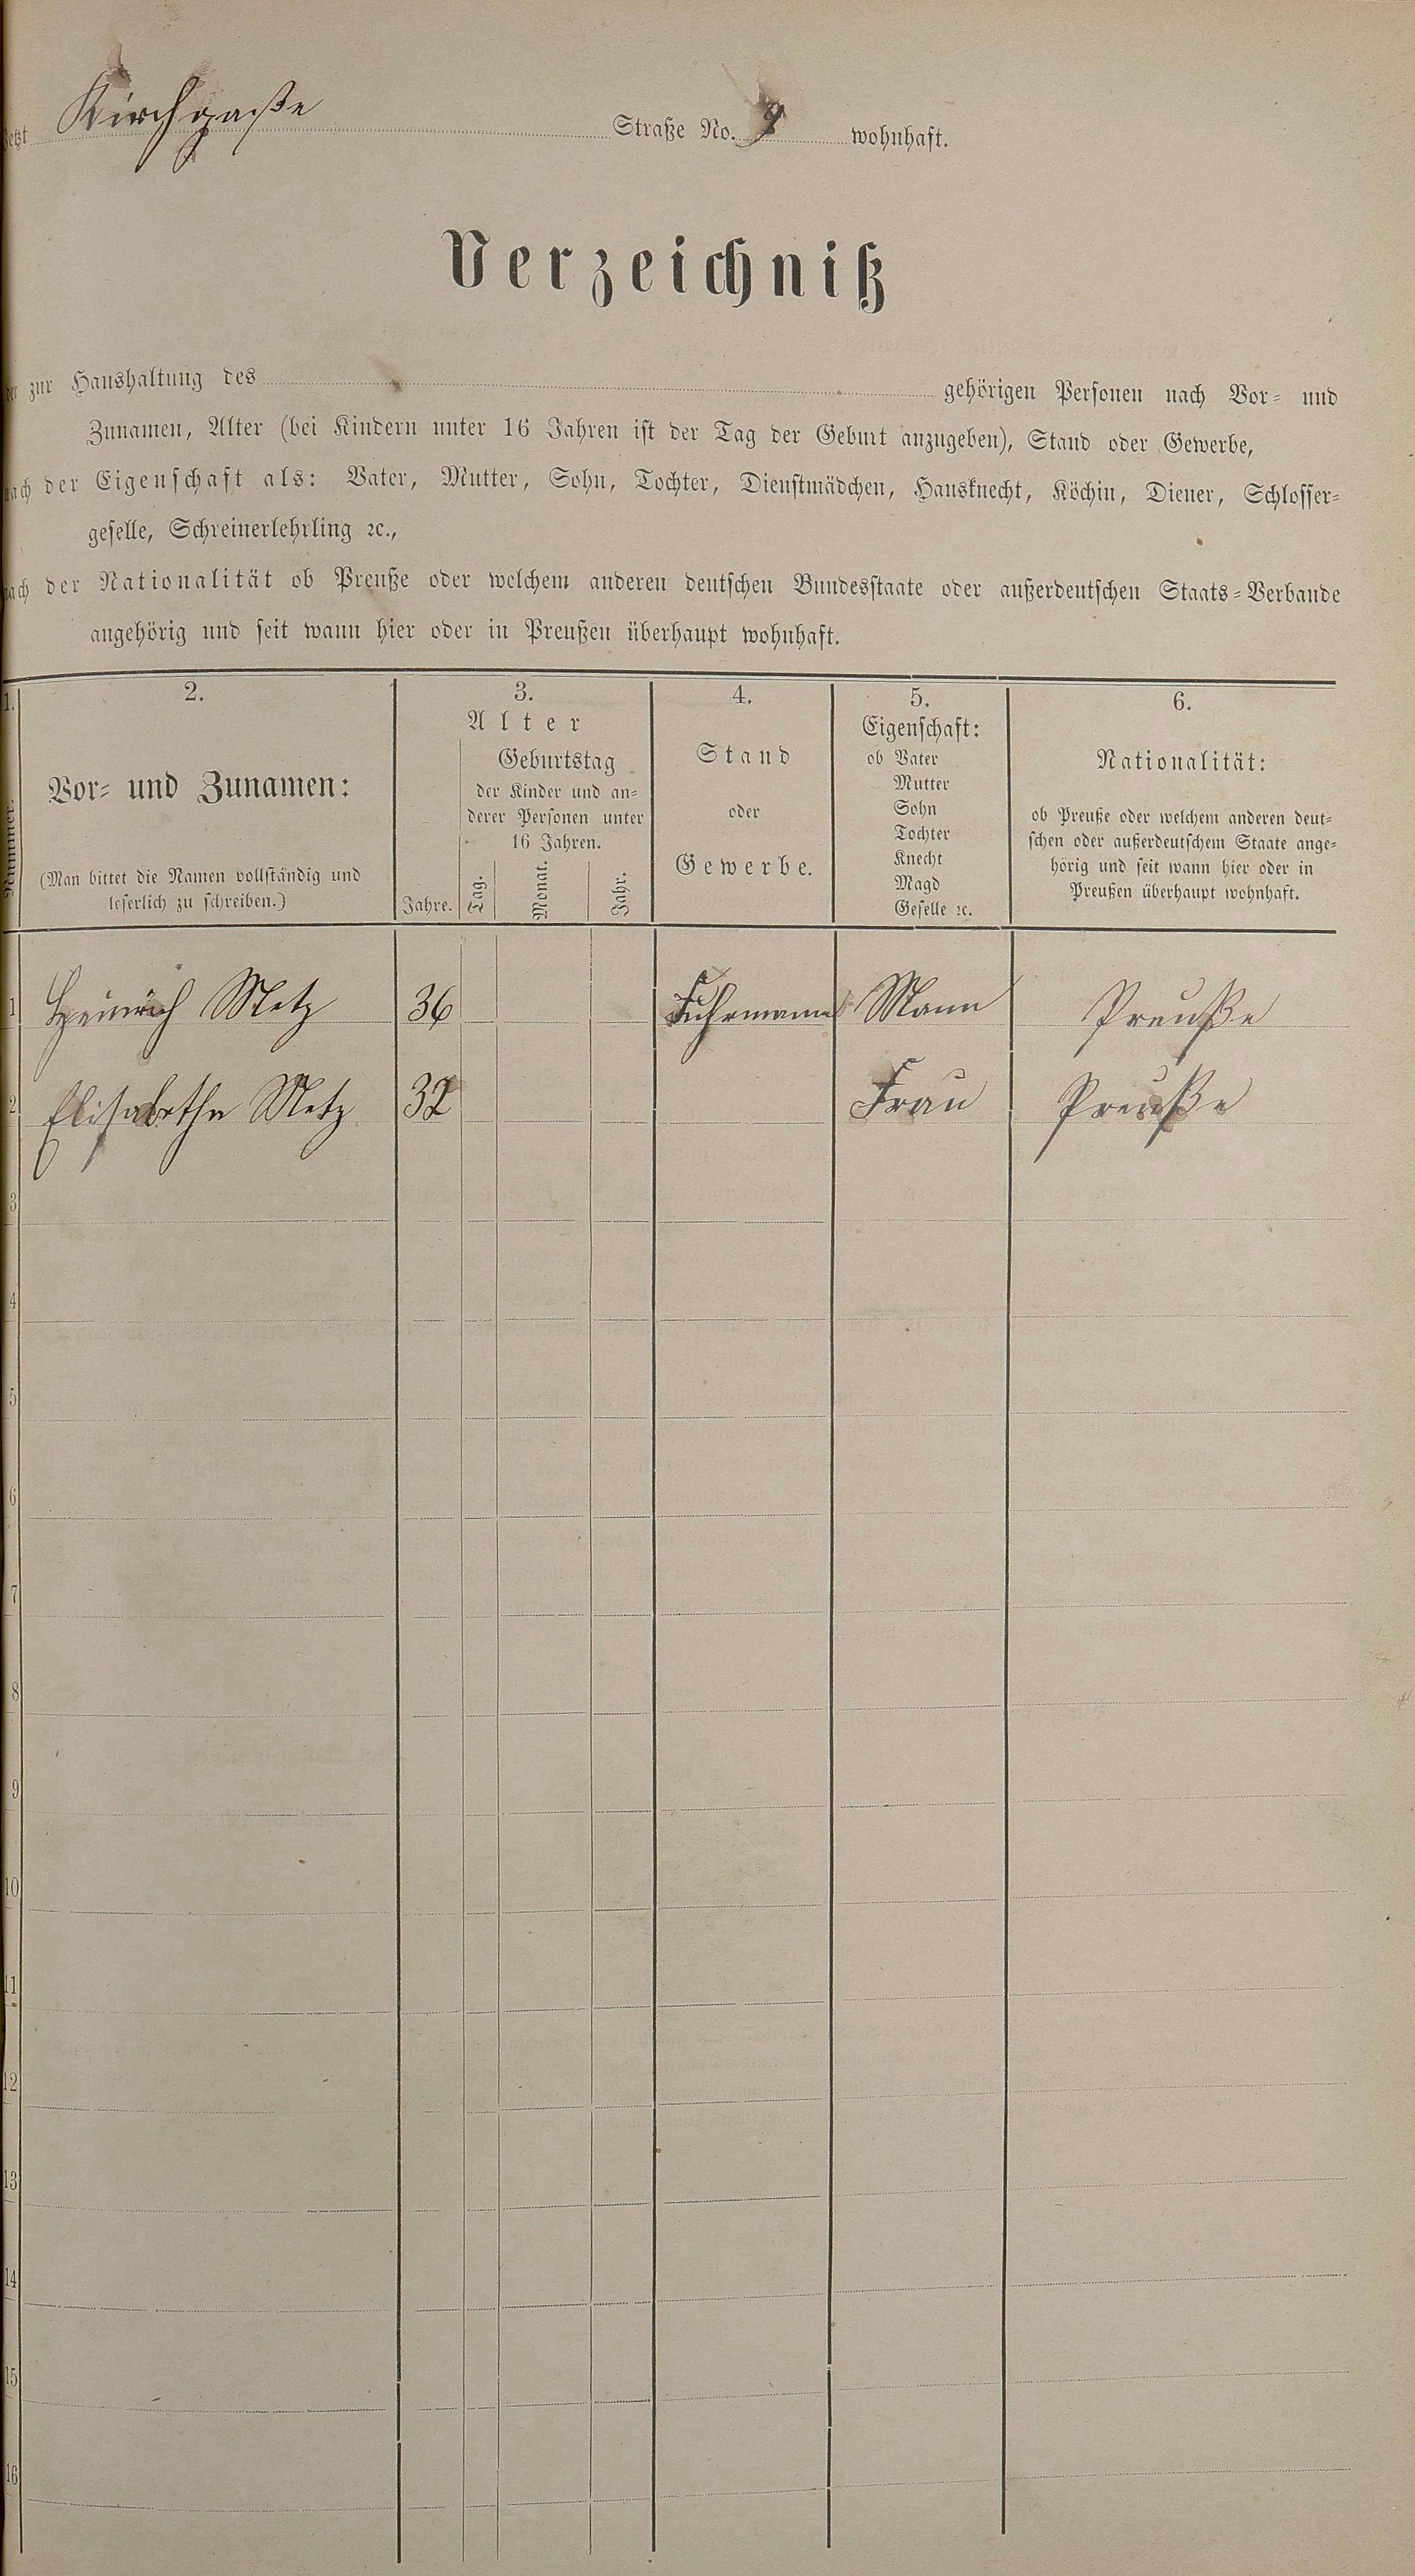 jetzt Kirchgaße Straße No. 9 wohnhaft.
Verzeichniß
der zur Haushaltung des gehörigen Personen nach Vor- und
Zunamen, Alter (bei Kindern unter 16 Jahren ist der Tag der Geburt anzugeben), Stand oder Gewerbe,
nach der Eigenschaft als: Vater, Mutter, Sohn, Tochter, Dienstmädchen, Hausknecht, Köchin, Diener, Schlosser-
geselle, Schreinerlehrling ꝛc.,
nach der Nationalität ob Preuße oder welchem anderen deutschen Bundesstaate oder außerdeutschen Staats-Verbande
angehörig und seit wann hier oder in Preußen überhaupt wohnhaft.
1.
Nummer.
2.
Vor- und Zunamen:
(Man bittet die Namen vollständig und
leserlich zu schreiben.)
3.
Alter
Jahre.
Geburtstag
der Kinder und an-
derer Personen unter
16 Jahren.
Tag.
Monat.
Jahr.
4.
Stand
oder
Gewerbe.
5.
Eigenschaft:
ob Vater
Mutter
Sohn
Tochter
Knecht
Magd
Geselle ꝛc.
6.
Nationalität:
ob Preuße oder welchem anderen deut-
schen oder außerdeutschem Staate ange-
hörig und seit wann hier oder in
Preußen überhaupt wohnhaft.
1 Heinrich Metz 36 Fuhrmann Mann Preuße
2 Elisabetha Metz 32 Frau Preuße
3
4
5
6
7
8
9
10
11
12
13
14
15
16